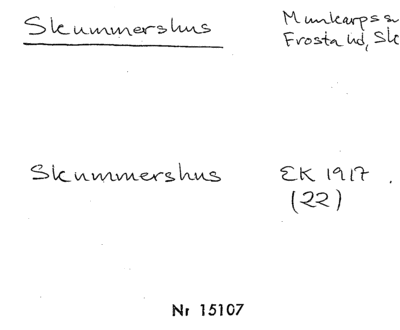 Skummershus Munkarps s
Frosta hd, Sk
Skummershus EK 1917
(22)
Nr 15107